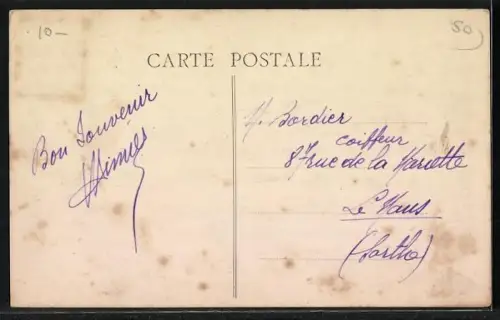 10-
50
CARTE POSTALE
Bon Souvenir
M. Bordier
coiffeur
87 rue de la Mariette
Le Mans
(Sarthe)